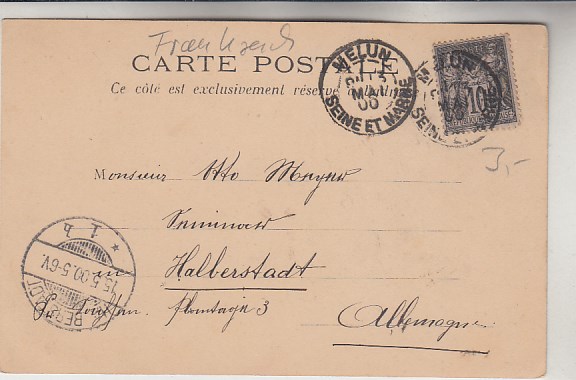 Frankreich
CARTE POSTALE
Ce côté est exclusivement réservé
MELUN
MAI
00
SEINE ET MARNE
MELUN
10
3,-
Monsieur Otto Meyer
Seminar
in
Halberstadt
3
Allemagne
* 1 b
15.5.00.5-6V.